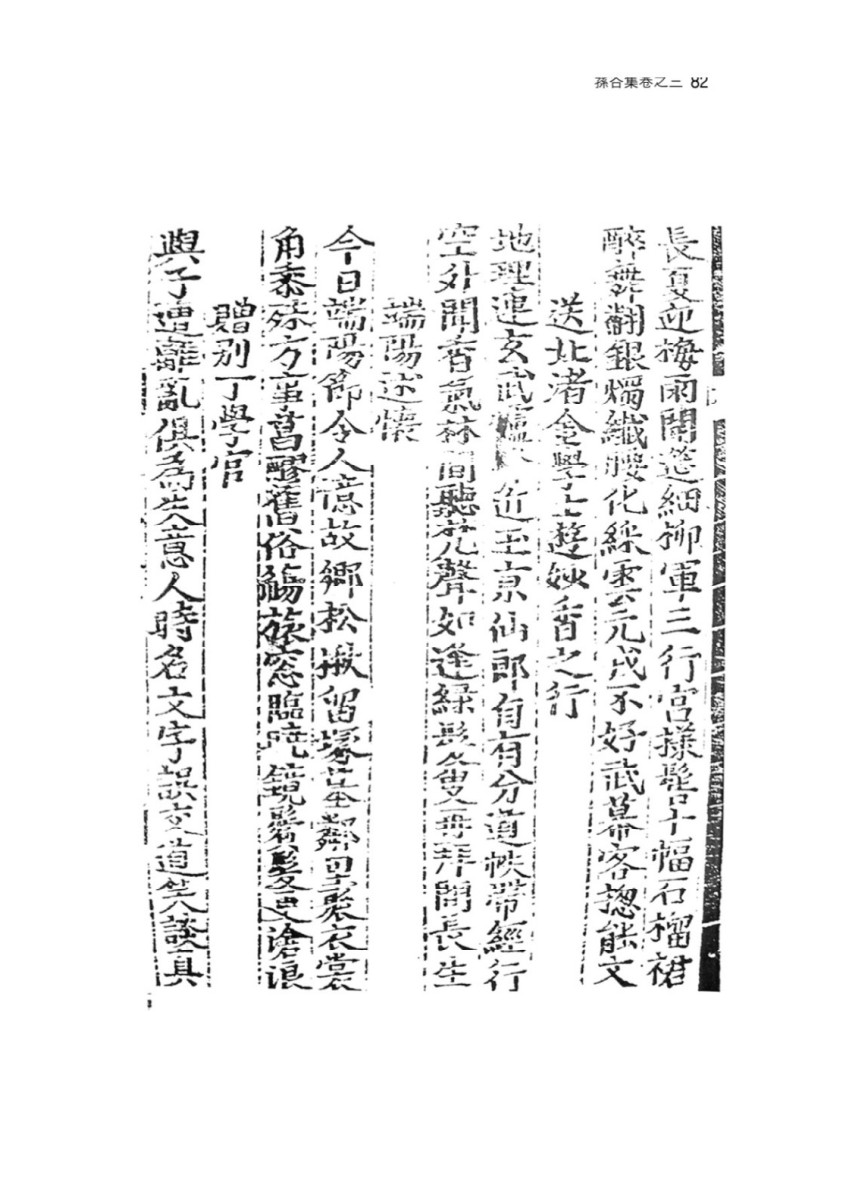 孫谷集卷之三 82
長夏迎梅雨開筵細柳軍三行宮樣髻十幅石榴裙
醉舞翻銀燭纖腰化綵雲元戎不好武幕客摠能文
送北渚金學士遊妙香之行
地理連玄武 近玉京仙郎自有分道帙帶經行
空外聞香氣林間聽梵聲如逢綠髮叟再拜問長生
端陽述懷
今日端陽節令人憶故鄉松楸留塚 鄰里裂衣裳
角黍殊方 菖醪舊俗觴旅窓臨曉鏡鬢髮更滄浪
贈別丁學官
與子遭離亂俱爲失意人時名文字誤交道笑談真